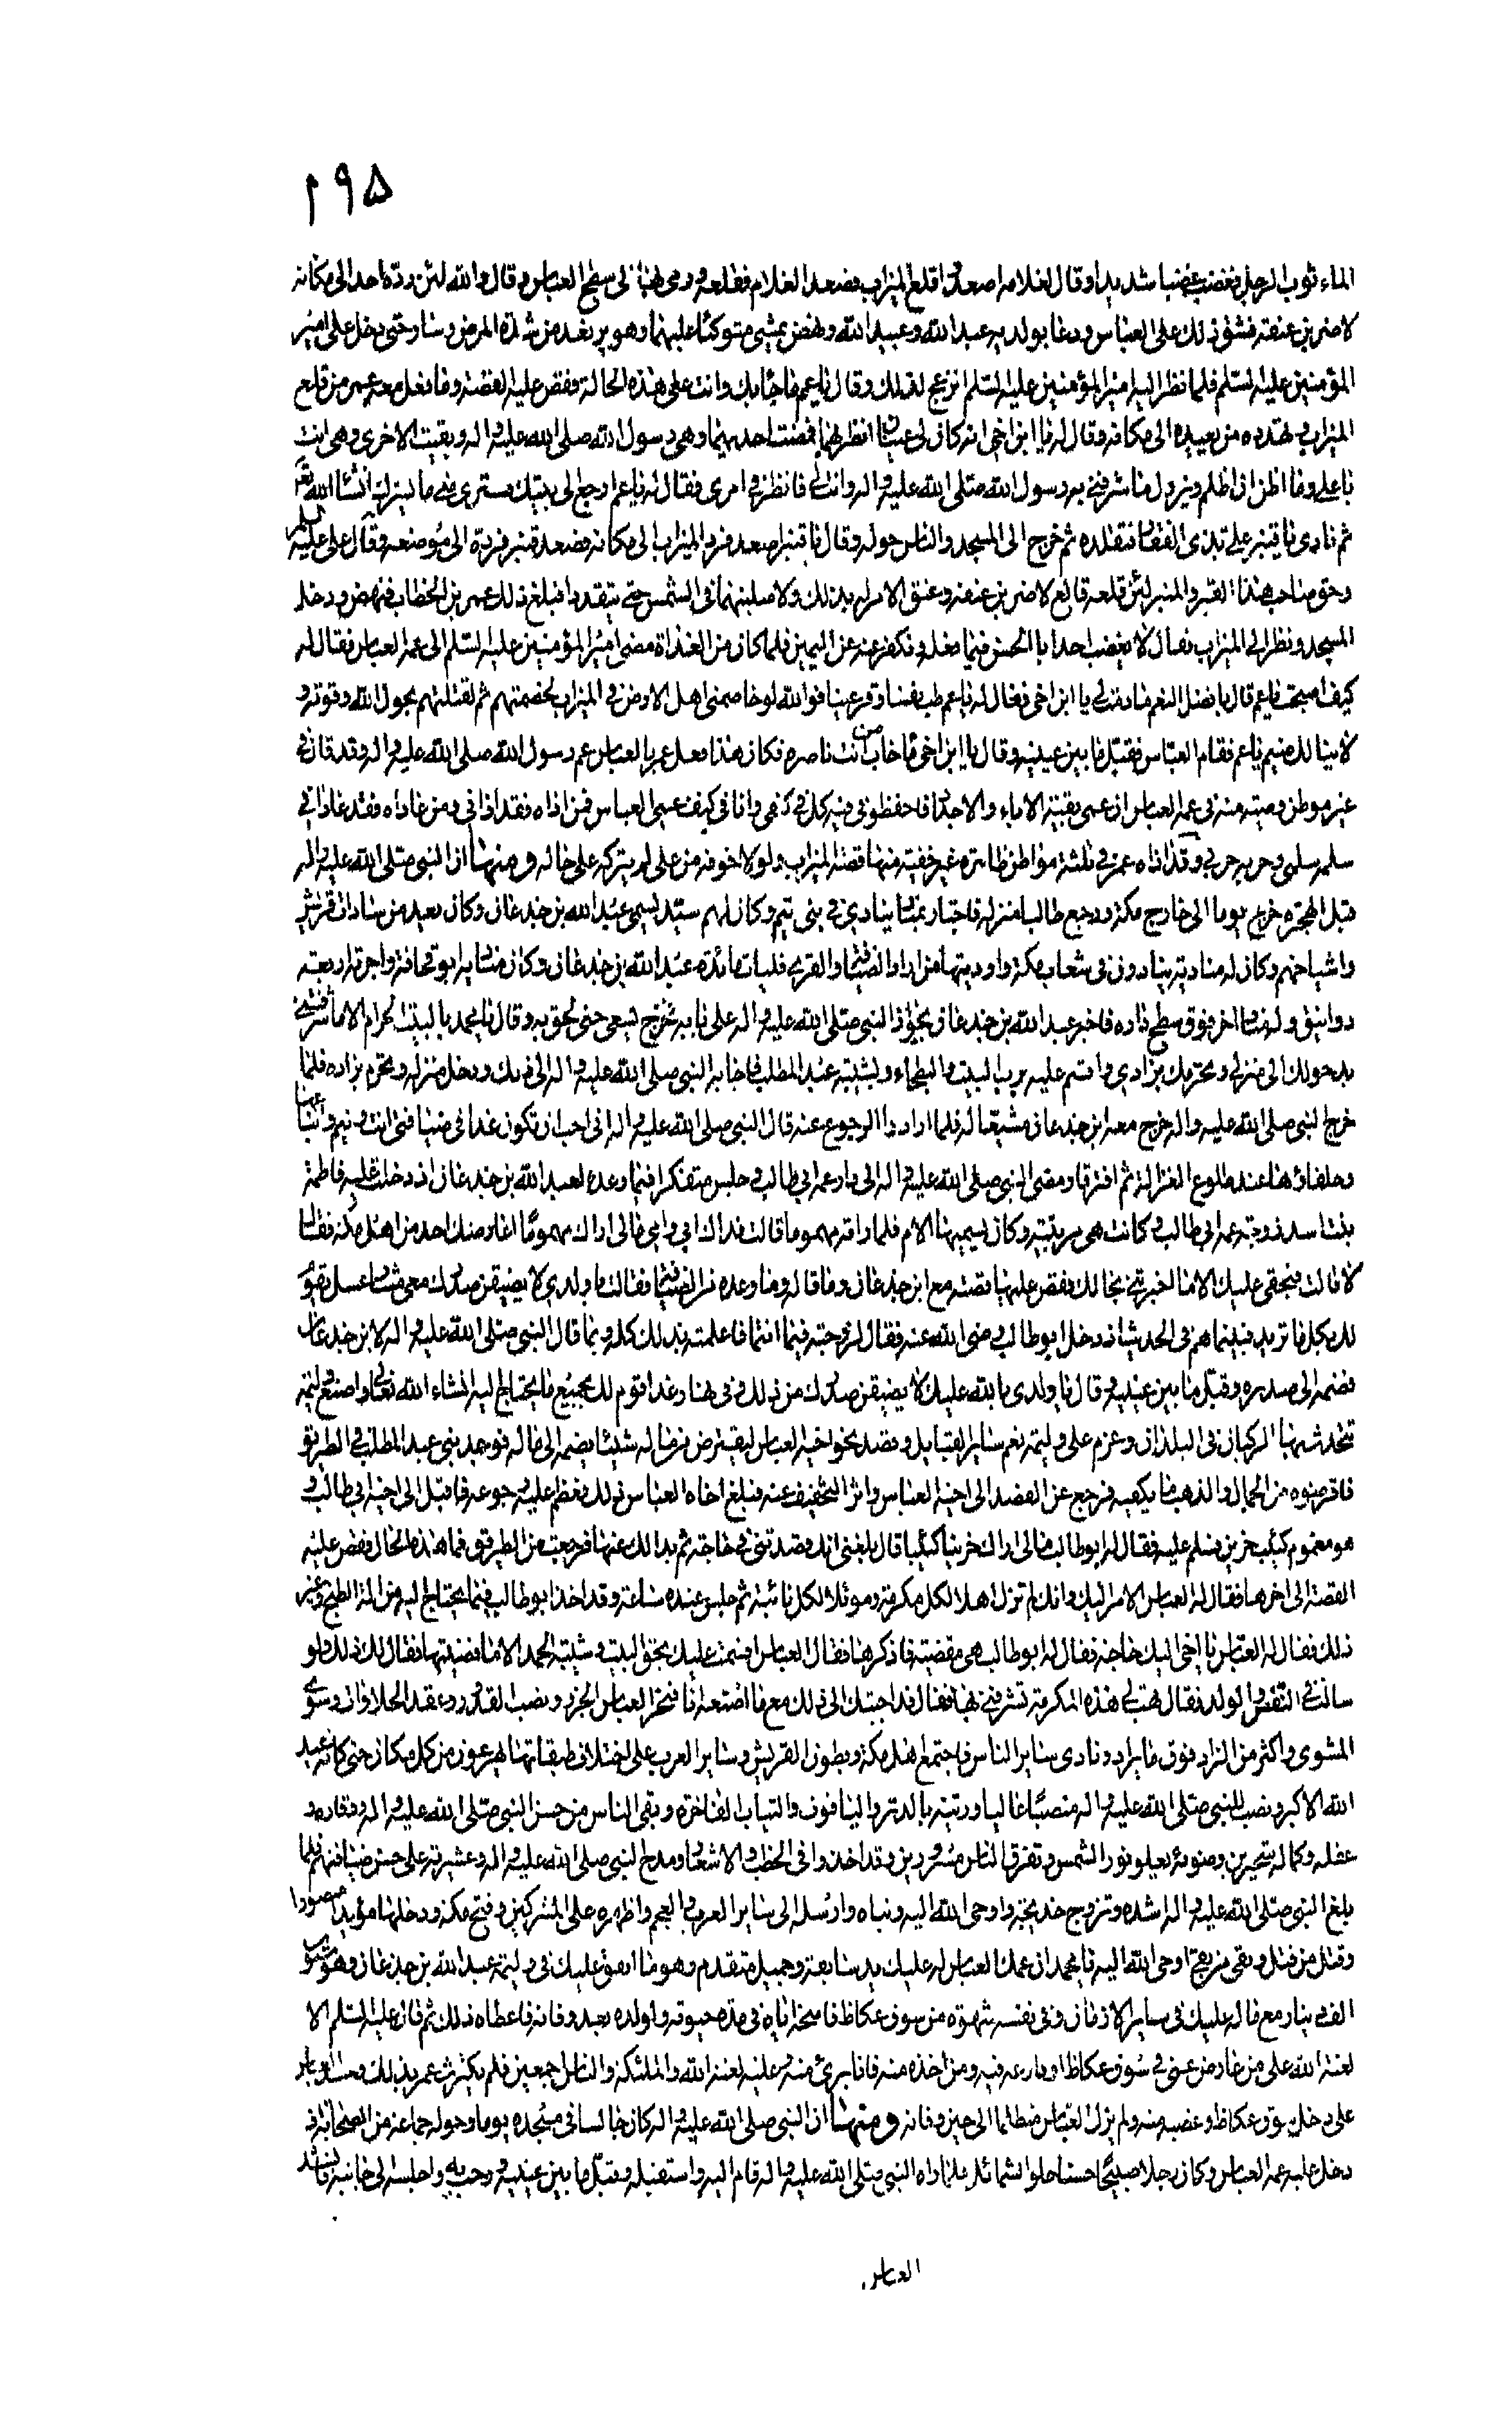 ٢٩٥
الماء ثوب الرجل فغضب غضبا شديدا وقال لغلامه اصعد واقلع الميزاب فصعد الغلام فقلعه ورمى به الى سطح العباس وقال والله لئن رده احد الى مكانه
لاضربن عنقه فشق ذلك على العباس ودعا بولديه عبد الله وعبيد الله ونهض يمشي متوكئا عليهما وهو يرتعد من شدة المرض وسار حتى دخل على امير
المؤمنين عليه السلم فلما نظر اليه امير المؤمنين عليه السلم انزعج لذلك وقال يا عم ما جاء بك وانت على هذه الحالة فقص عليه القصة وما فعل معه عمر من قلع
الميزاب وتهدده من يعيده الى مكانه وقال له يا ابن اخي انه كان لي عينان انظر بهما فمضت احديهما وهي رسول الله صلى الله عليه واله وبقيت الاخرى وهي انت
يا علي وما اظن ان اظلم ويزول ما شرفني به رسول الله صلى الله عليه واله وانت لي فانظر في امري فقال له يا عم ارجع الى بيتك فسترى مني ما يسرك انشاء الله تعالى
ثم نادى يا قنبر علي بذي الفقار فتقلده ثم خرج الى المسجد والناس حوله وقال يا قنبر اصعد فرد الميزاب الى مكانه فصعد قنبر فرده الى موضعه وقال علي عليه السلم
وحق صاحب هذا القبر والمنبر لئن قلعه قالع لاضربن عنقه وعنق الامر له بذلك ولاصلبنهما في الشمس حتى يتقددا فبلغ ذلك عمر بن الخطاب فنهض ودخل
المسجد ونظر الى الميزاب فقال لا يغضب احد ابا الحسن فيما فعله ونكفر عنه عن اليمين فلما كان من الغداة مضى امير المؤمنين عليه السلم الى عمه العباس فقال له
كيف اصبحت يا عم قال بافضل النعم ما دمت لي يا ابن اخي فقال له يا عم طب نفسا وقر عينا فوالله لو خاصمني اهل الارض في الميزاب لخصمتهم ثم لقتلتهم بحول الله وقوته و
لا ينالك ضيم يا عم فقام العباس فقبل ما بين عينيه وقال يا ابن اخي ما خاب من انت ناصره فكان هذا فعل عمر بالعباس عم رسول الله صلى الله عليه واله وقد قال في
غير موطن وصيته منه في عمه العباس ان عمي بقية الاباء والاجداد فاحفظوني فيه كل في كنفي وانا في كنف عمي العباس فمن اذاه فقد اذاني ومن عاداه فقد عاداني
سلمه سلمي وحربه حربي وقد اذاه عمر في ثلثة مواطن ظاهرة غير خفية منها قصة الميزاب ولولا خوفه من علي لم يتركه على حاله ومنها ان النبي صلى الله عليه واله
قبل الهجرة خرج يوما الى خارج مكة ورجع طالبا منزله فاجتاز بمناد ينادي في بني تيم وكان لهم سيد يسمى عبد الله بن جدعان وكان يعد من سادات قريش
واشياخهم وكان له منادية ينادون في شعاب مكة واوديتها من اراد الضيافة والقرى فليات مائدة عبد الله بن جدعان وكان مناديه ابو قحافة واجرته اربعة
دوانيق وله مناد اخر فوق سطح داره فاخبر عبد الله بن جدعان بجواز النبي صلى الله عليه واله على بابه فخرج يسعى حتى لحق به وقال يا محمد بالبيت الحرام الا ما شرفتني
بدخولك الى منزلي وتحرمك بزادي واقسم عليه برب البيت والبطحاء وبشيبة عبد المطلب فاجابه النبي صلى الله عليه واله الى ذلك ودخل منزله وتحرم بزاده فلما
خرج النبي صلى الله عليه واله خرج معه ابن جدعان مشيعا له فلما اراد الرجوع عنه قال النبي صلى الله عليه واله اني احب ان تكون غدا في ضيافتي انت وتيم واتباعها
وحلفاؤها عند طلوع الغزالة ثم افترقا ومضى النبي صلى الله عليه واله الى دار عمه ابي طالب وجلس متفكرا فيما وعده لعبد الله بن جدعان اذ دخلت عليه فاطمة
بنت اسد زوجة عمه ابي طالب وكانت هي مربيته وكان يسميها الام فلما راته مهموما قالت فداك ابي وامي ما لي اراك مهموما اعارضك احد من اهل مكة فقال
لا قالت فبحقي عليك الا ما اخبرتني بحالك فقص عليها قصته مع ابن جدعان وما قاله وما وعده من الضيافة فقالت يا ولدي لا يضيقن صدرك معي مشار عسل يقوم
لك بكل ما تريد فبينما هم في الحديث اذ دخل ابو طالب رضي الله عنه فقال لزوجته فيما انتما فاعلمته بذلك كله وبما قال النبي صلى الله عليه واله لابن جدعان
فضمه الى صدره وقبل ما بين عينيه وقال يا ولدي بالله عليك لا يضيقن صدرك من ذلك وفي نهار غد اقوم لك بجميع ما يحتاج اليه انشاء الله تعالى واصنع وليمة
تتحدث بها الركبان في البلدان وعزم على وليمة تعم ساير القبايل وقصد نحو اخيه العباس ليقترض من ماله شيئا يضمه الى ماله فوجد بني عبد المطلب في الطريق
فاقرضوه من الجمال والذهب ما يكفيه فرجع عن القصد الى اخيه العباس واثر التخفيف عنه فبلغ اخاه العباس ذلك فعظم عليه رجوعه فاقبل الى اخيه ابي طالب و
هو مغموم كئيب حزين فسلم عليه فقال له ابو طالب مالي اراك حزينا كئيبا قال بلغني انك قصدتني في حاجة ثم بدا لك عنها فرجعت من الطريق فما هذه الحال فقص عليه
القصة الى اخرها فقال له العباس الامر اليك وانك لم تزل اهلا لكل مكرمة وموئلا لكل نائبة ثم جلس عنده ساعة وقد اخذ ابو طالب فيما يحتاج اليه من الة الطبخ وغير
ذلك فقال له العباس يا اخي لي اليك حاجة فقال له ابو طالب هي مقضية فاذكرها فقال العباس اقسمت عليك بحق البيت وشيبة الحمد الا ما قضيتها فقال لك ذلك ولو
سالت في النفس والولد فقال تهب لي هذه المكرمة تشرفني بها فقال قد اجبتك الى ذلك مع ما اصنعه انا فنحر العباس الجزر ونصب القدور وعقد الحلاوات وشوى
المشوى واكثر من الزاد فوق ما يراد ونادى ساير الناس فاجتمع اهل مكة وبطون القريش وساير العرب على اختلاف طبقاتها يهرعون من كل مكان حتى كانه عيد
الله الاكبر ونصب للنبي صلى الله عليه واله منصبا عاليا وزينه بالدر والياقوت والثياب الفاخرة وبقى الناس من حسن النبي صلى الله عليه واله ووقاره و
عقله وكماله متحيرين وضوئه يعلو نور الشمس وتفرق الناس مسرورين وقد اخذوا في الخطب والاشعار ومدح النبي صلى الله عليه واله وعشيرته على حسن ضيافتهم فلما
بلغ النبي صلى الله عليه واله اشده وتزوج خديجة واوحى الله اليه ونباه وارسله الى ساير العرب والعجم واظهره على المشركين وفتح مكة ودخلها مؤيدا منصورا
وقتل من قتل وبقى من بقى اوحى الله اليه يا محمد ان عمك العباس له عليك يد سابقة وجميل متقدم وهو ما انفق عليك في وليمة عبد الله بن جدعان وهو ستون
الف دينار مع ماله عليك في ساير الازمان وفي نفسه شهوة من سوق عكاظ فامنحه اياه في مدة حيوته ولولده بعد وفاته فاعطاه ذلك ثم قال عليه السلم الا
لعنة الله على من عارض عمي في سوق عكاظ او نازعه فيه ومن اخذه منه فانا بريء منه وعليه لعنة الله والملئكة والناس اجمعين فلم يكترث عمر بذلك وحسد العباس
على دخل سوق عكاظ وغصبه منه ولم يزل العباس متظلما الى حين وفاته ومنها ان النبي صلى الله عليه واله كان جالسا في مسجده يوما وحوله جماعة من الصحابة اذ
دخل عليه عمه العباس وكان رجلا صبيحا حسنا حلو الشمائل فلما راه النبي صلى الله عليه واله قام اليه واستقبله وقبل ما بين عينيه ورحب به واجلسه الى جانبه فانشد
العباس